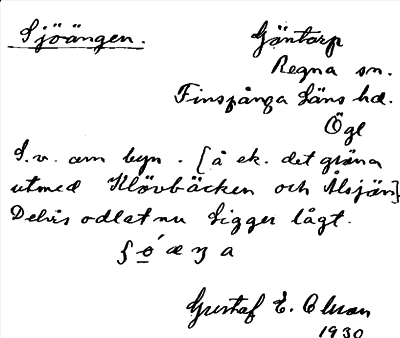 Sjöängen.
Göntorp
Regna sn.
Finspånga Läns hd.
Ögl
S.v. om byn. [å ek. det gröna
utmed Klövbäcken och Ålsjön]
Delvis odlat nu Ligger lågt.
Gustaf E. Olsson
1930